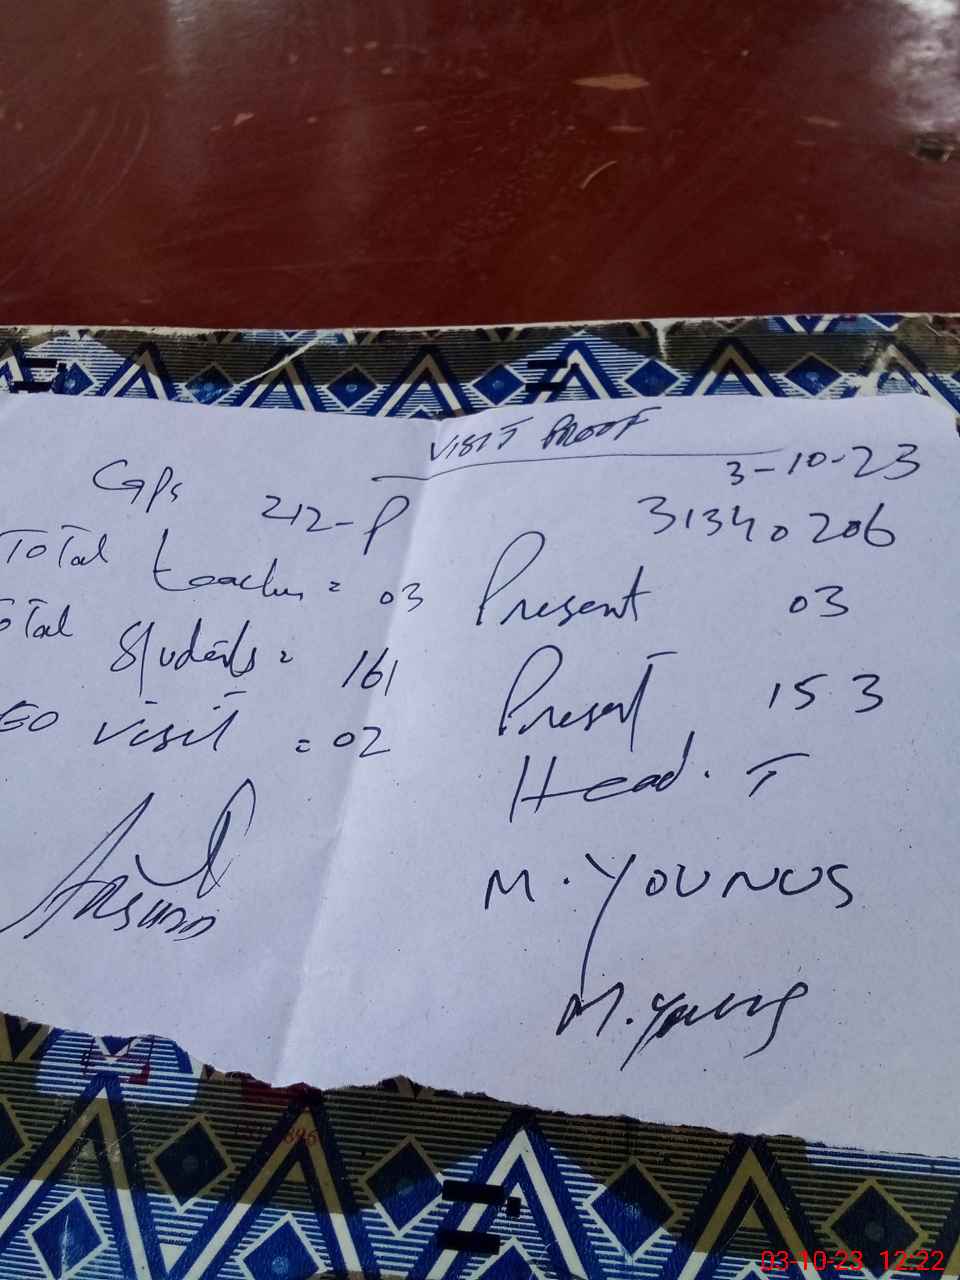 VISIT PROOF
3-10-23
GPs 212-P 31340206
Total teacher = 03 Present 03
Total Students = 161 Present 153
EO visit = 02
Head. T
M. YOUNUS
M. Younus
03-10-23 12:22